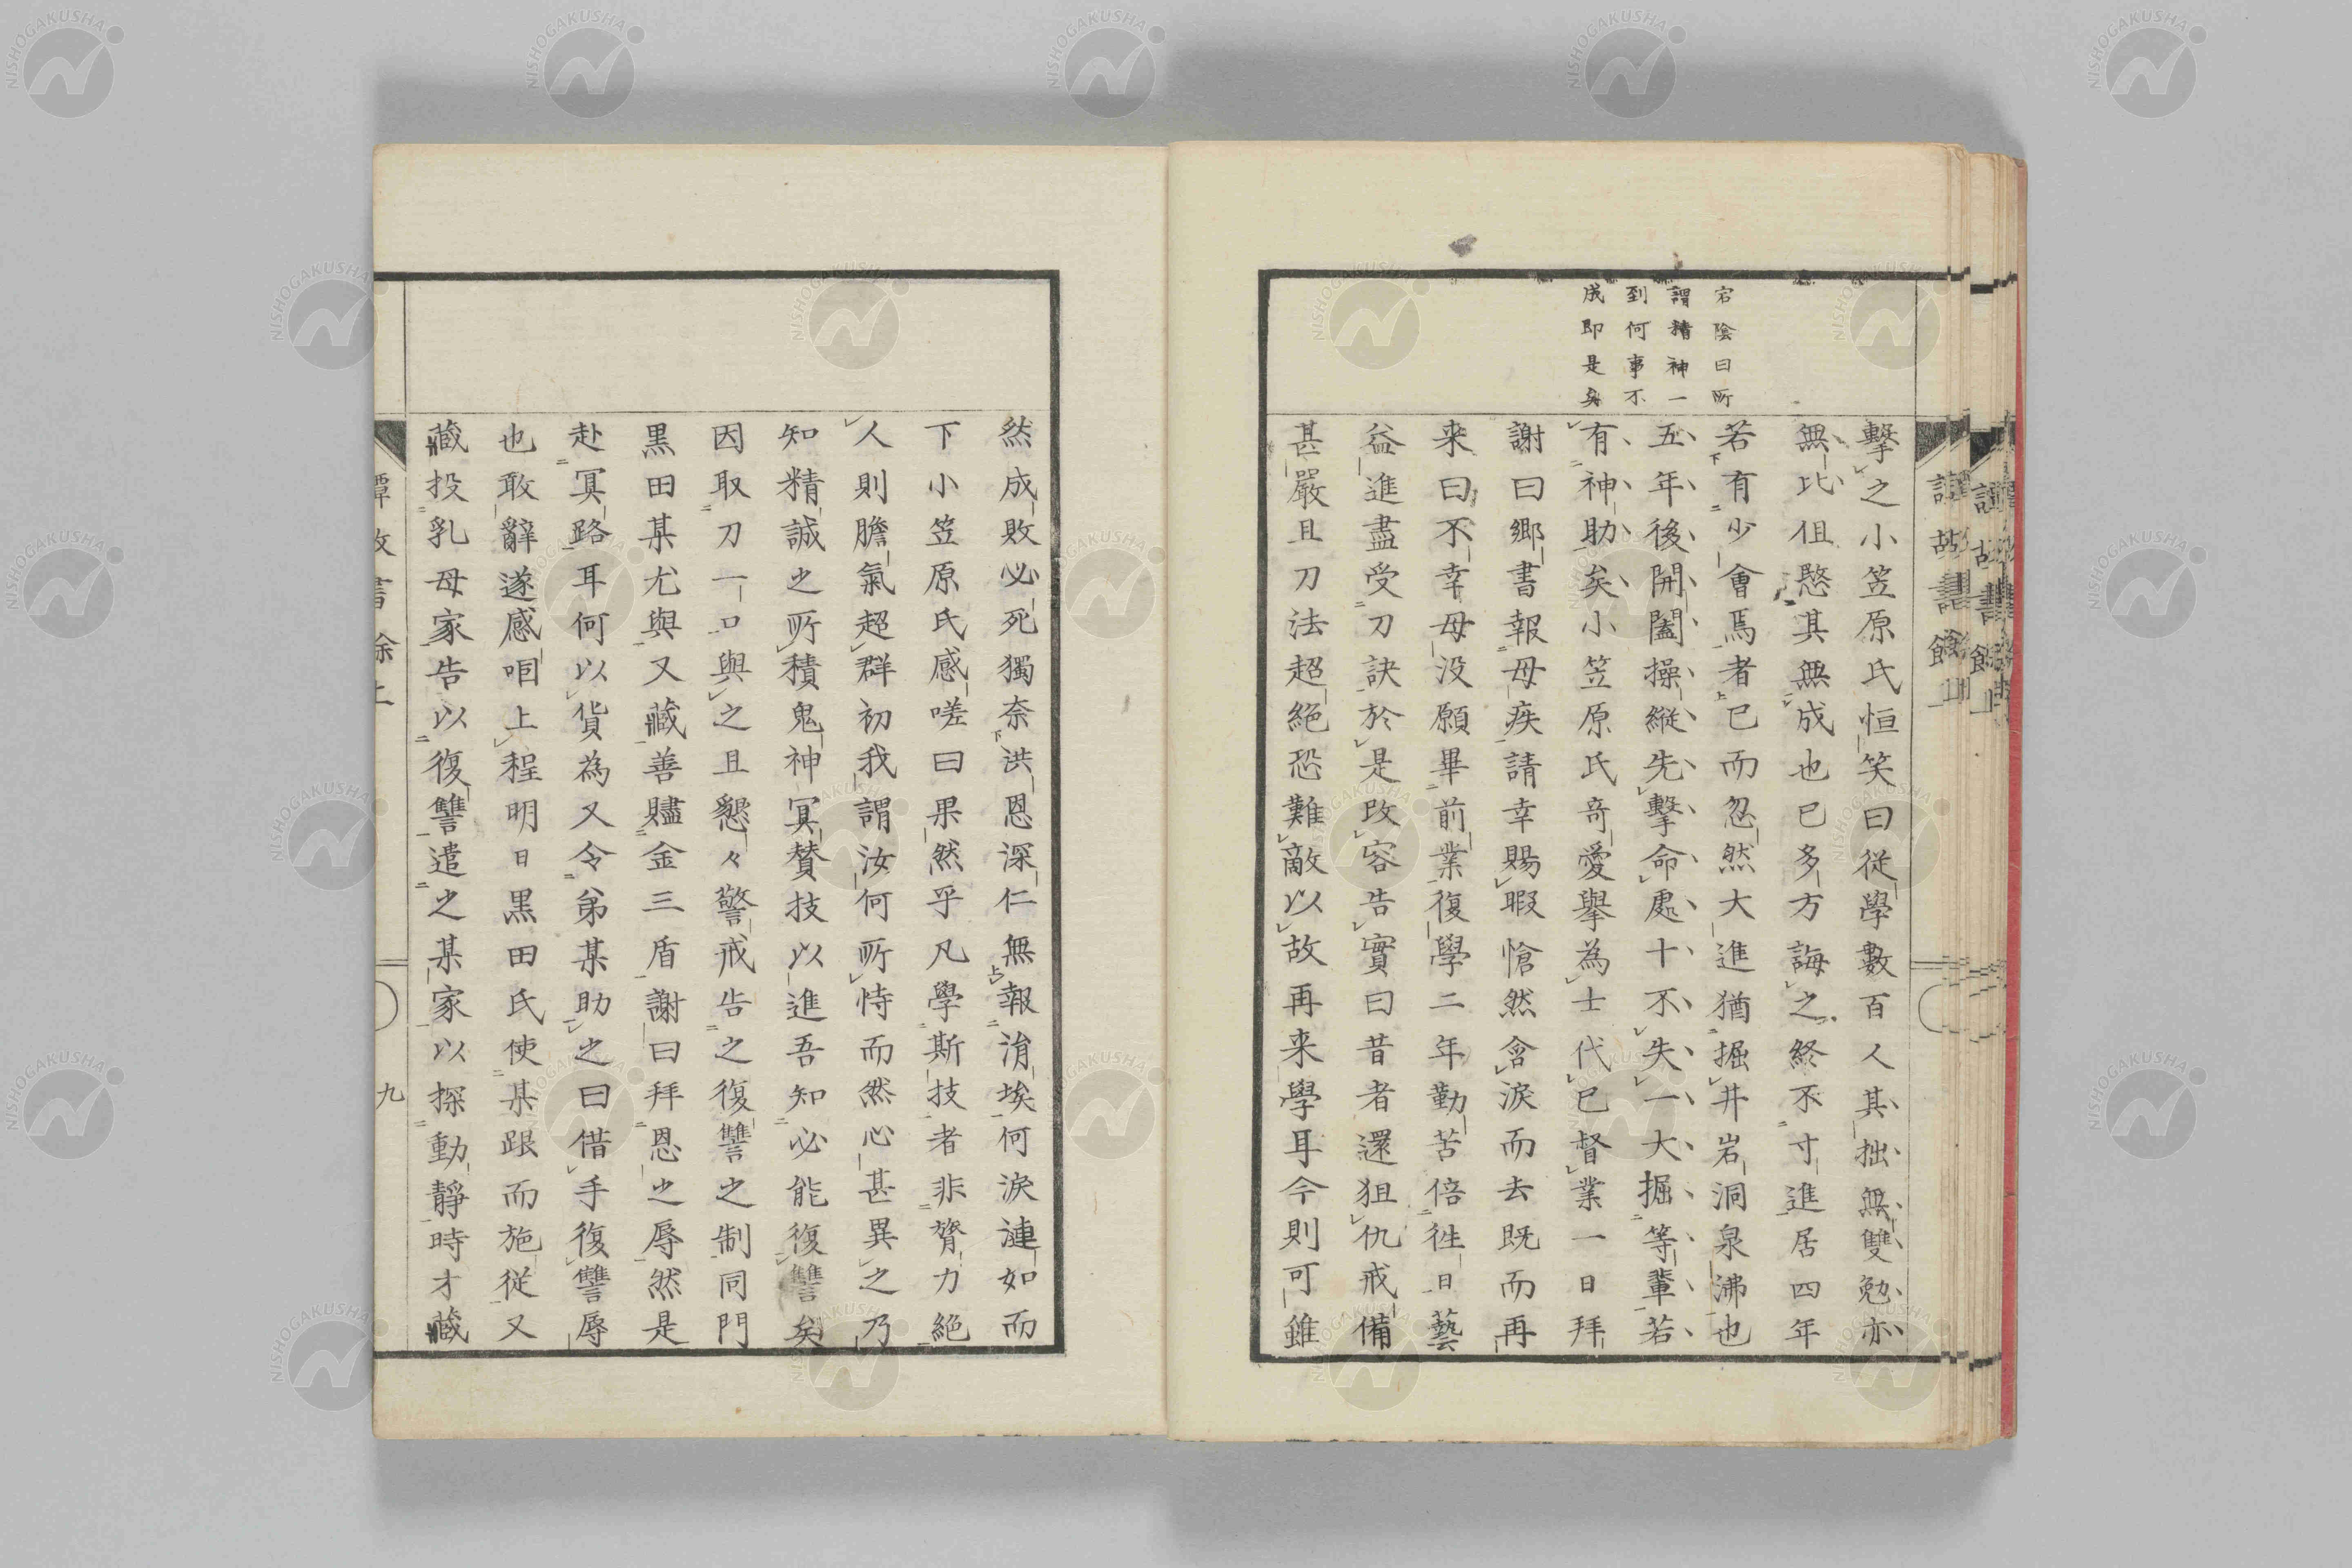 宕陰曰所
謂精神一
到何事不
成即是矣
擊之小笠原氏恒笑曰從學數百人其拙無雙勉亦
無比但愍其無成也已多方誨之終不寸進居四年
若有少會焉者已而忽然大進猶掘井岩洞泉沸也
五年後開闔操縱先擊命處十不失一大掘等輩若
有神助矣小笠原氏奇愛舉為士代已督業一日拜
謝曰鄉書報母疾請幸賜暇愴然含淚而去既而再
来曰不幸母没願畢前業復學二年勤苦倍徃日藝
益進盡受刀訣於是改容告實曰昔者還狙仇戒備
甚嚴且刀法超絕恐難敵以故再来學耳今則可雖
然成敗必死獨奈洪恩深仁無報涓埃何淚漣如而
下小笠原氏感嗟曰果然乎凡學斯技者非膂力絕
人則膽氣超群初我謂汝何所恃而然心甚異之乃
知精誠之所積鬼神冥賛技以進吾知必能復讐矣
因取刀一口與之且懇々警戒告之復讐之制同門
黒田某尤與又藏善贐金三盾謝曰拜恩之辱然是
赴冥路耳何以貨為又令弟某助之曰借手復讐辱
也敢辭遂感咽上程明日黒田氏使某跟而施從又
藏投乳母家告以復讐遣之某家以探動靜時才藏
譚故書餘上
九